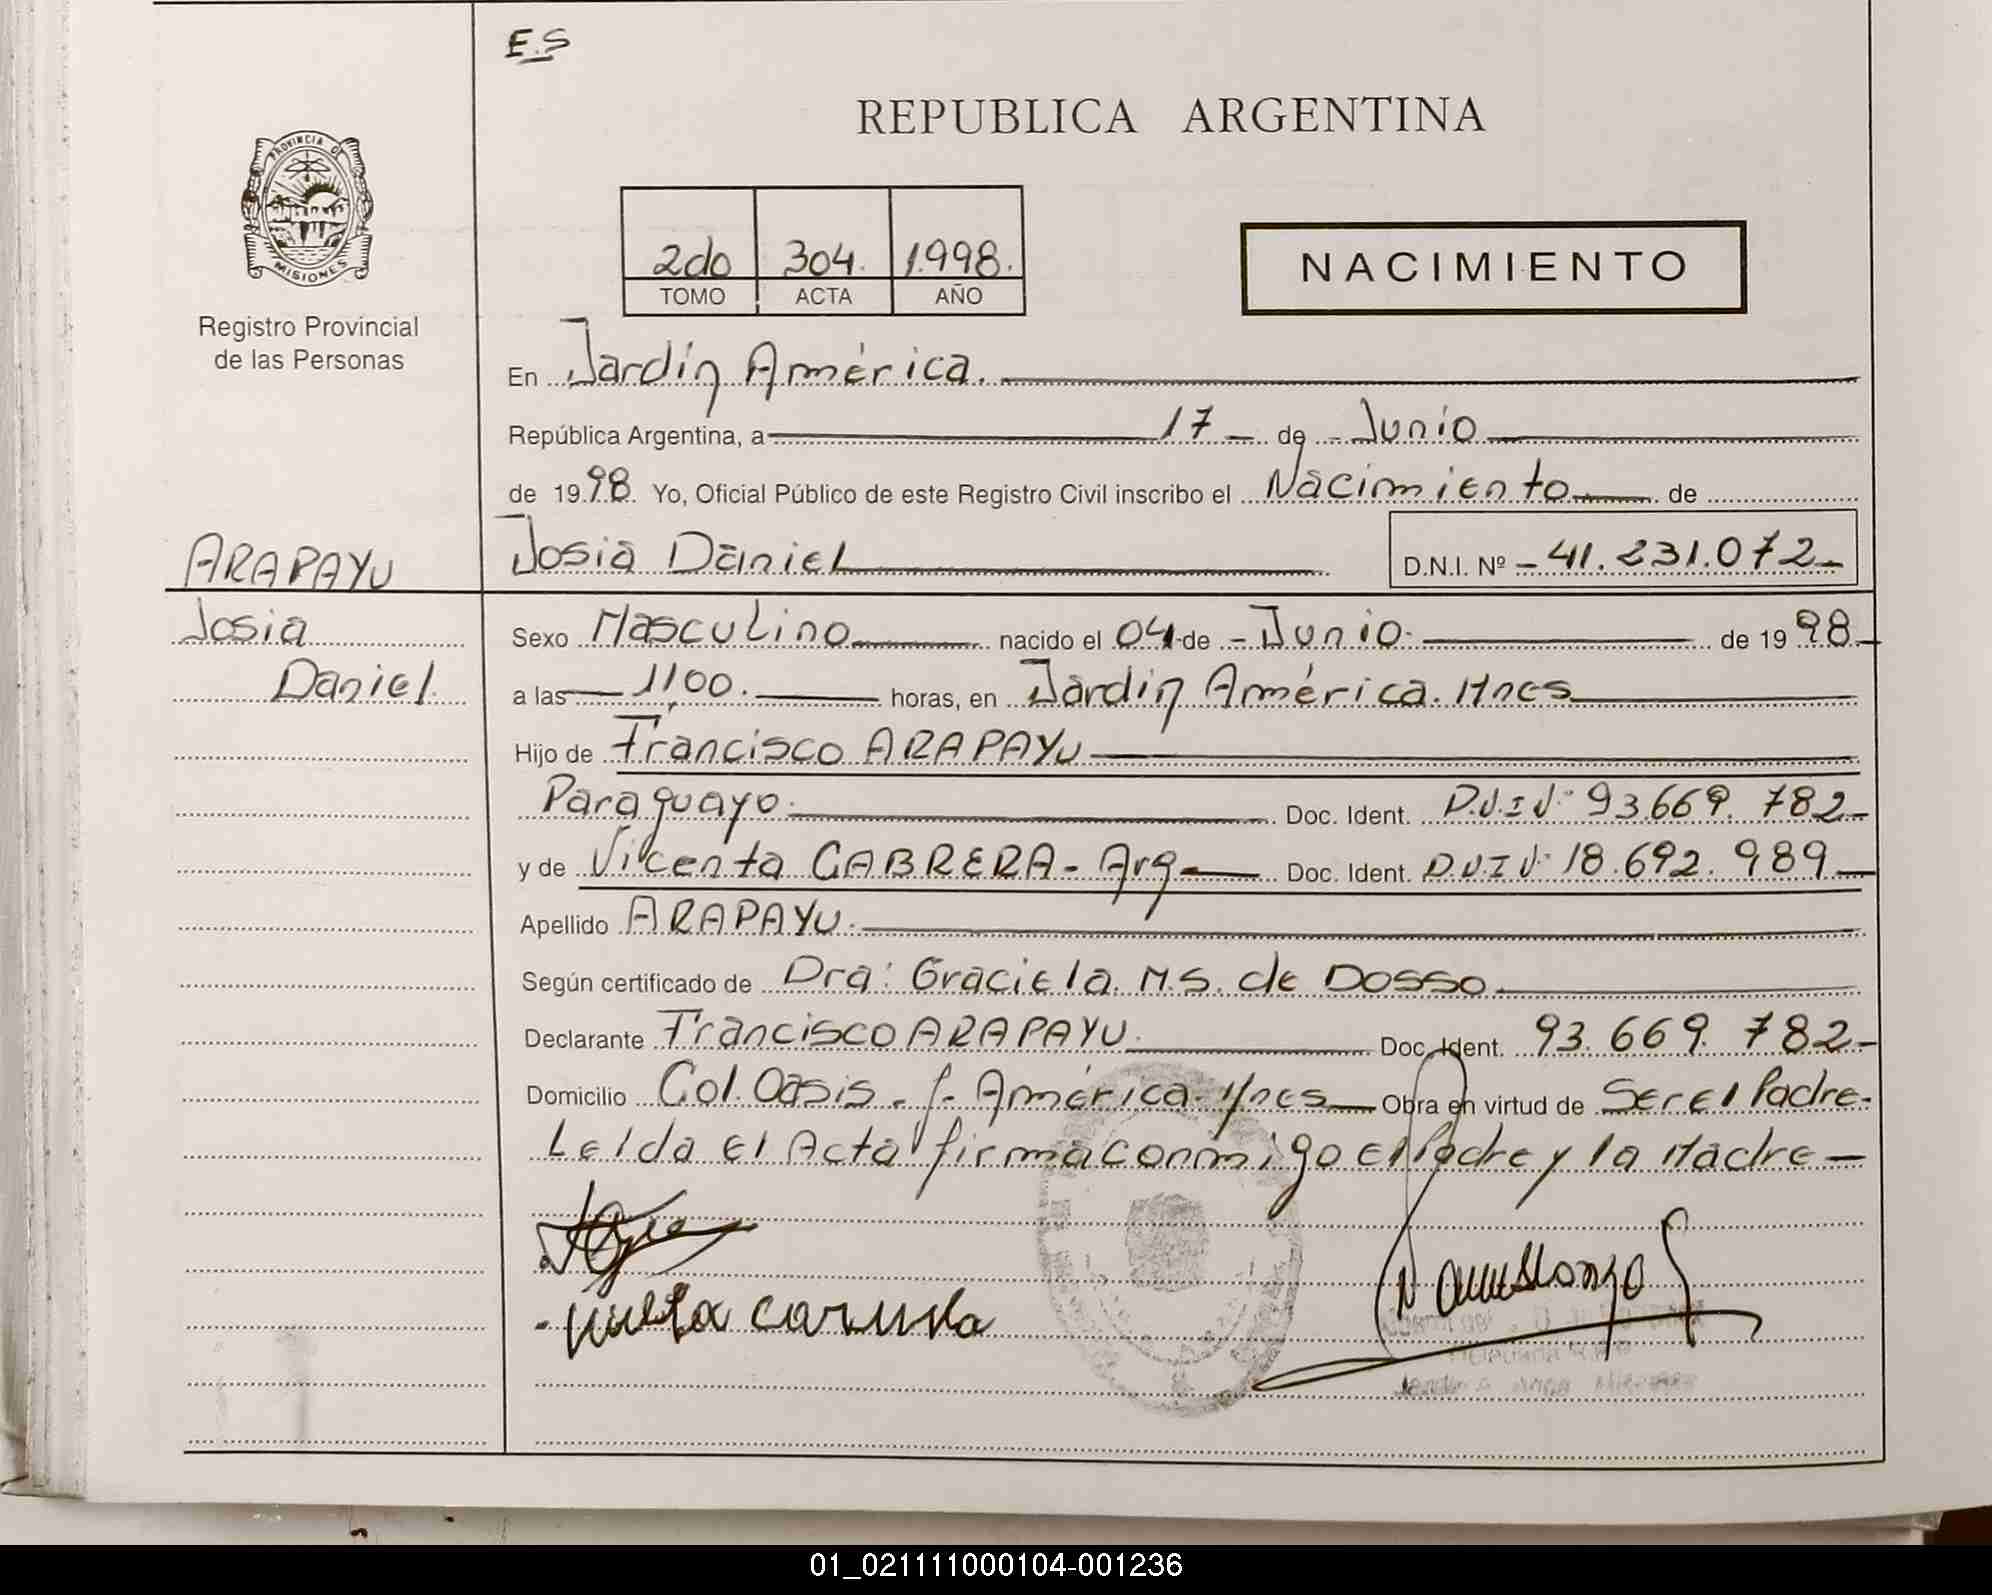 E.S
REPUBLICA ARGENTINA
PROVINCIA DE
MISIONES
Registro Provincial
de las Personas
2do 304. 1.998.
TOMO ACTA AÑO
NACIMIENTO
En Jardín América.
República Argentina, a 17 de Junio
de 1998. Yo, Oficial Público de este Registro Civil inscribo el Nacimiento de
ARAPAYU Josia Daniel D.N.I. Nº 41.231.072
Josia Sexo Masculino nacido el 04 de Junio de 1998
Daniel. a las 1,100. horas, en Jardín América. Mnes
Hijo de Francisco ARAPAYU
Paraguayo. Doc. Ident. D.N.I Nº 93.669.782
y de Vicenta CABRERA - Arg. Doc. Ident. D.N.I Nº 18.692.989
Apellido ARAPAYU.
Según certificado de Dra: Graciela M.S. de Dosso
Declarante Francisco ARAPAYU. Doc. Ident. 93.669.782
Domicilio Col. Oasis - J. América - Mnes Obra en virtud de Ser el Padre.
Leída el Acta firma conmigo el Padre y la Madre
01_021111000104-001236